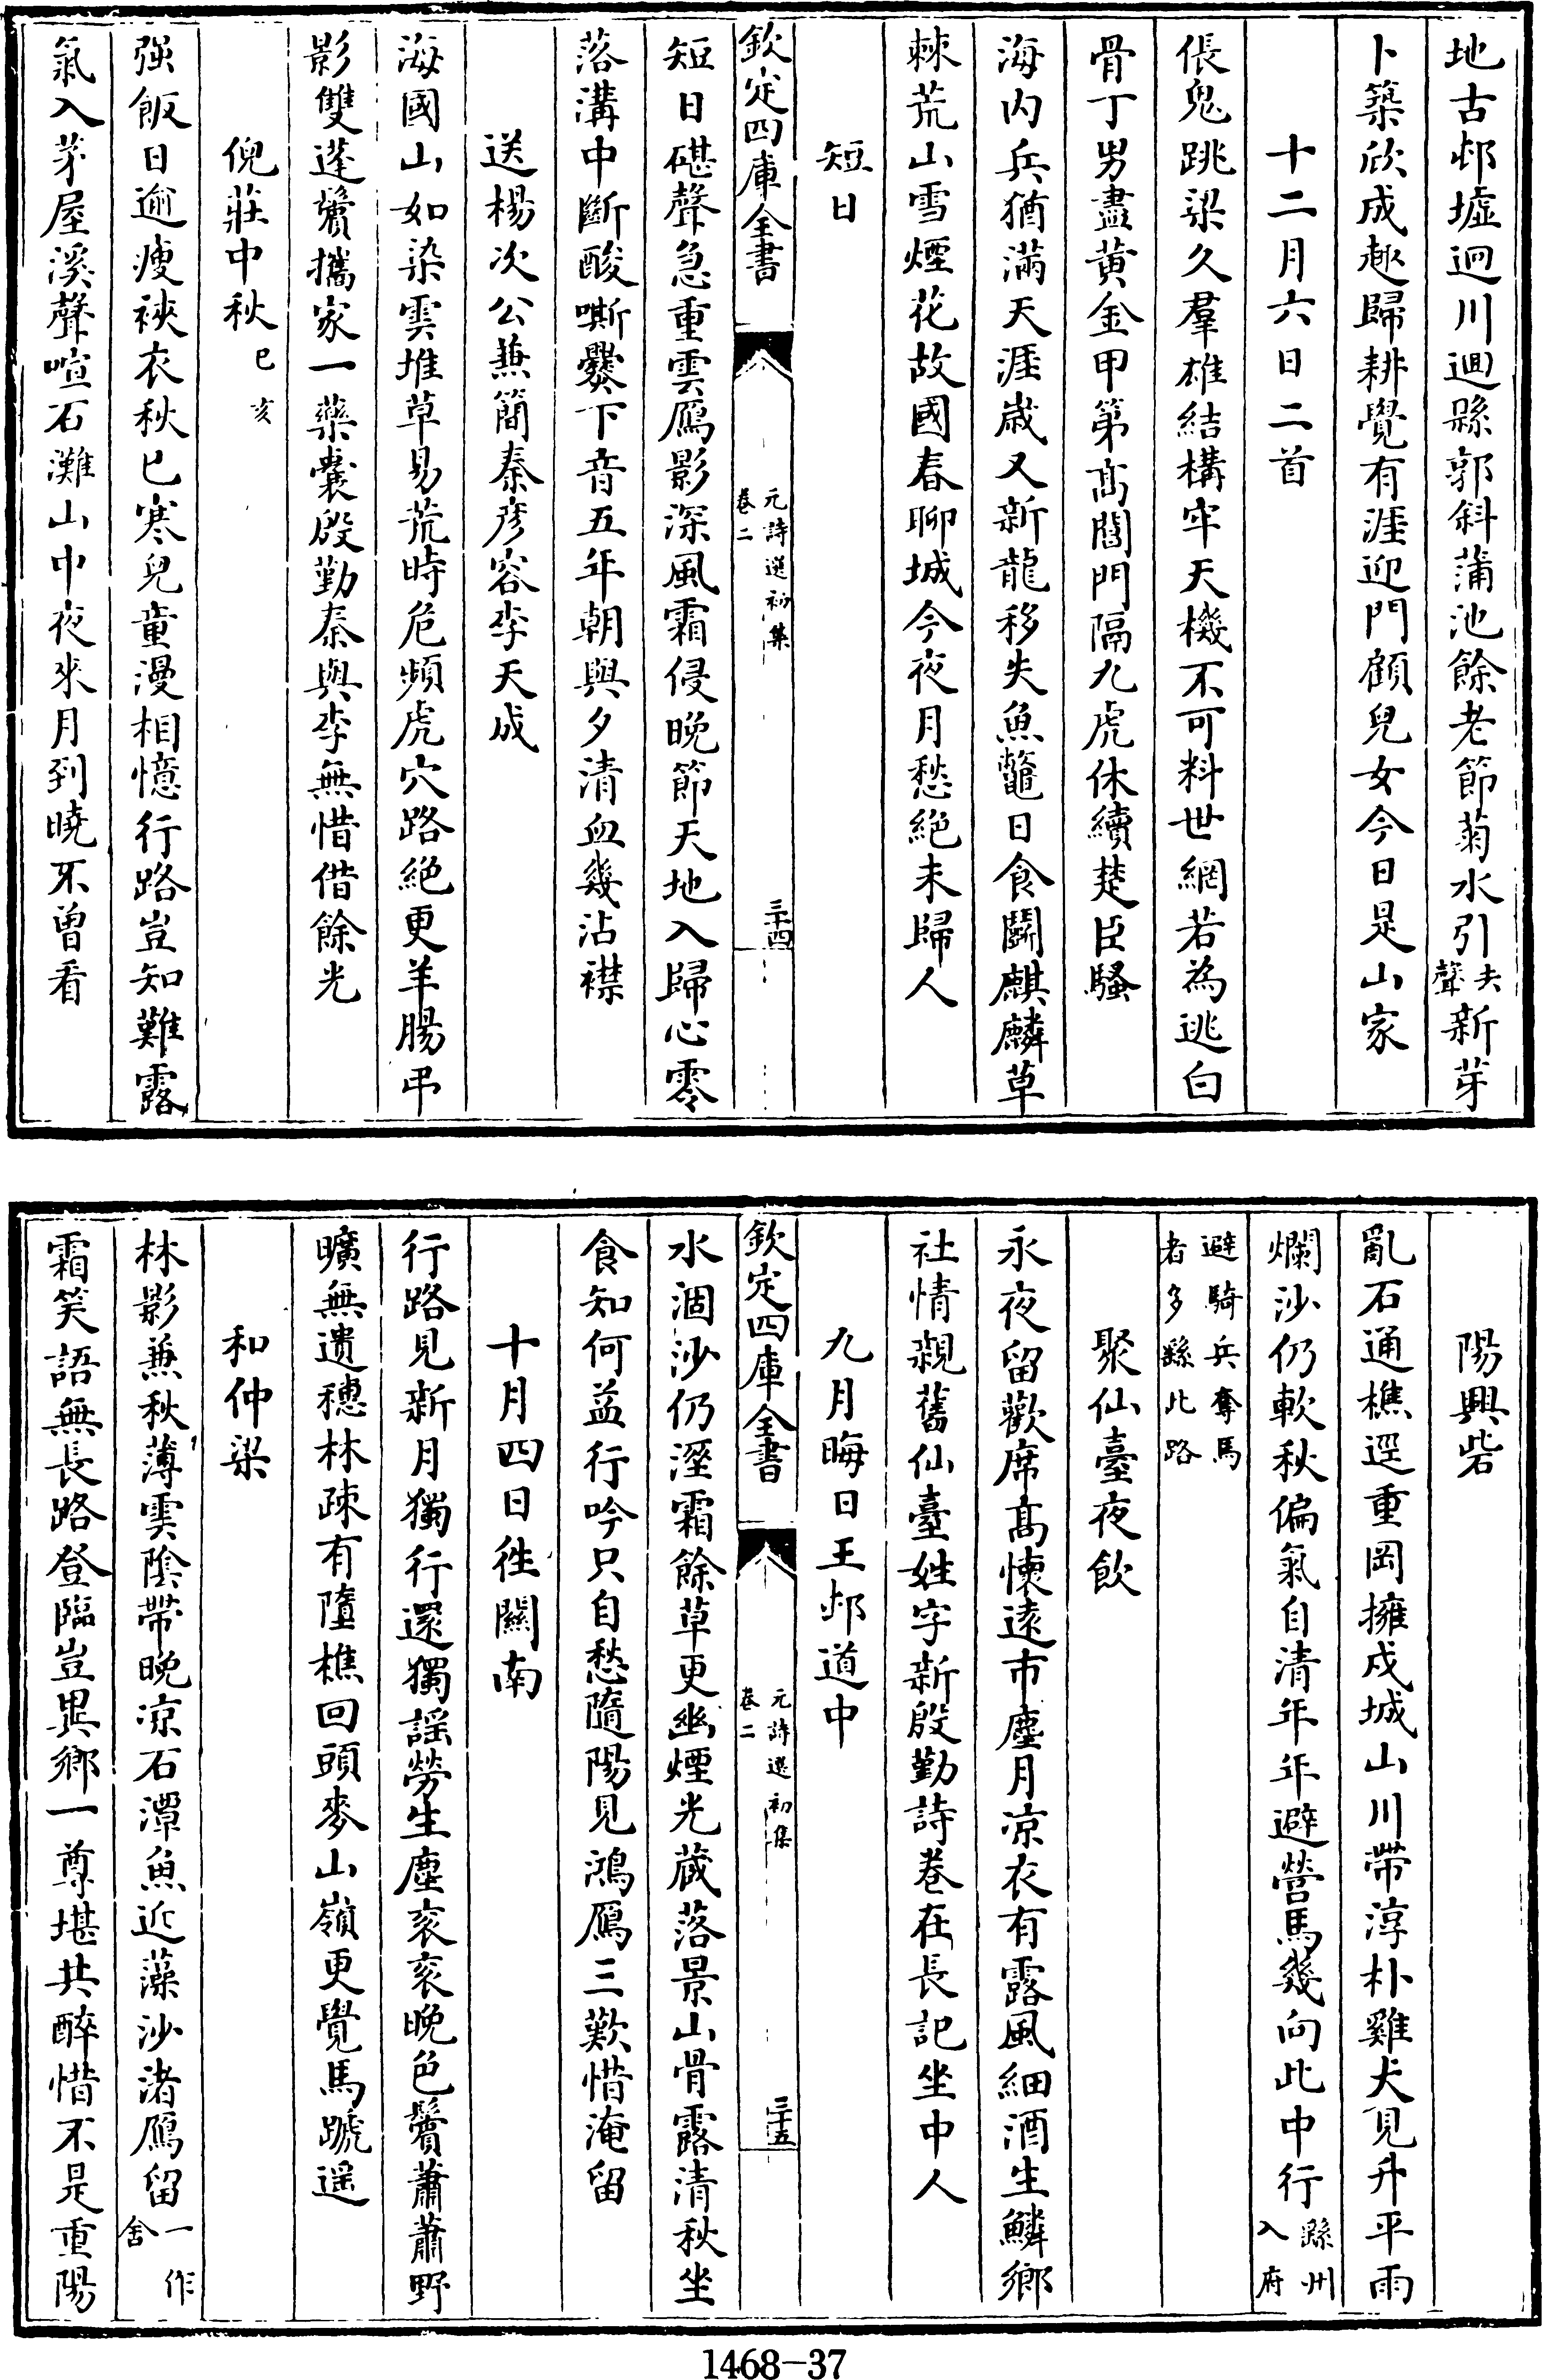 地古邨墟迥川迴縣郭斜蒲池餘老節菊水引去聲新芽
卜築欣成趣歸耕覺有涯迎門顧兒女今日是山家
十二月六日二首
倀鬼跳梁久羣雄結構牢天機不可料世網若為逃白
骨丁男盡黄金甲第髙閶門隔九虎休續楚臣騷
海内兵猶滿天涯歲又新龍移失魚鼈日食鬭麒麟草
棘荒山雪煙花故國春聊城今夜月愁絶未歸人
短日
欽定四庫全書
元詩選初集
卷二
三十四
短日碪聲急重雲鴈影深風霜侵晚節天地入歸心零
落溝中斷酸嘶爨下音五年朝與夕清血幾沾襟
送楊次公兼簡秦彦容李天成
海國山如染雲堆草易荒時危頻虎穴路絶更羊腸弔
影雙蓬鬢攜家一藥囊殷勤秦與李無惜借餘光
倪莊中秋己亥
強飯日逾瘦裌衣秋已寒兒童漫相憶行路豈知難露
氣入茅屋溪聲喧石灘山中夜來月到曉不曽看
陽興砦
亂石通樵逕重岡擁戍城山川帶淳朴雞犬見升平雨
爛沙仍軟秋偏氣自清年年避營馬幾向此中行繇州入府
避騎兵奪馬者多繇此路
聚仙臺夜飲
永夜留歡席髙懷逺市塵月凉衣有露風細酒生鱗鄉
社情親舊仙臺姓字新殷勤詩卷在長記坐中人
九月晦日王邨道中
欽定四庫全書
元詩選初集
卷二
三十五
水涸沙仍溼霜餘草更幽煙光藏落景山骨露清秋坐
食知何益行吟只自愁隨陽見鴻鴈三歎惜淹留
十月四日徃關南
行路見新月獨行還獨謡勞生塵衮衮晚色鬢蕭蕭野
曠無遺穗林疎有墮樵回頭麥山嶺更覺馬蹏遥
和仲梁
林影兼秋薄雲陰帶晚凉石潭魚近藻沙渚鴈留一作舎
霜笑語無長路登臨豈異鄉一尊堪共醉惜不是重陽
1468-37